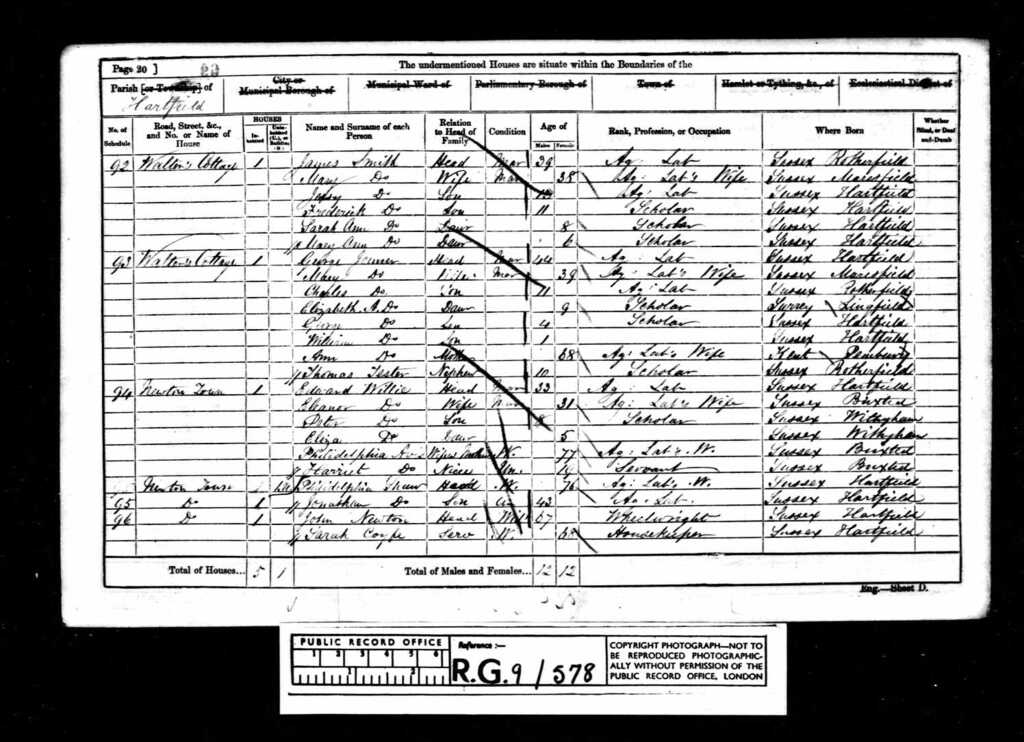 The undermentioned Houses are situate within the Boundaries of the
Page 20 ] 23
Parish [or Township] of City or Municipal Borough of Municipal Ward of Parliamentary Borough of Town of Hamlet or Tything, &c., of Ecclesiastical District of
Hartfield
No. of Schedule Road, Street, &c., and No. or Name of House HOUSES In-habited Name and Surname of each Person Relation to Head of Family Condition Age of Males Females Rank, Profession, or Occupation Where Born Whether Blind, or Deaf-and-Dumb
92 Walter's Cottage 1 James Smith Head Mar 39 Ag: Lab Sussex Rotherfield
Mary Do Wife Mar 38 Ag: Lab's Wife Sussex Maresfield
Do Son Ag: Lab Sussex Hartfield
Frederick Do Son 11 Scholar Sussex Hartfield
Sarah Ann Do Daur 8 Scholar Sussex Hartfield
Mary Ann Do Daur 6 Scholar Sussex Hartfield
93 Walter's Cottage 1 George Head Mar 44 Ag: Lab Sussex Hartfield
Mary Do Wife Mar 39 Ag: Lab's Wife Sussex Maresfield
Charles Do Son 11 Ag: Lab Sussex Rotherfield
Elizabeth A. Do Daur 9 Scholar Surrey Lingfield
Do Son 4 Scholar Sussex Hartfield
William Do Son 1 Sussex Hartfield
Ann Do Mother 68 Ag: Lab's Wife Kent Pembury
Thomas Tester Nephew 10 Scholar Sussex Rotherfield
94 Newton Town 1 Edward Head Mar 33 Ag: Lab Sussex Hartfield
Eleanor Do Wife Mar 31 Ag: Lab's Wife Sussex Buxted
Peter Do Son 8 Scholar Sussex Withyham
Eliza Do Daur 5 Sussex Withyham
Philadelphia Wifes 77 Ag: Lab's W. Sussex Buxted
Harriet Do Niece Un. 14 Servant Sussex Buxted
Newton Town 1 Philadelphia Head W. 76 Ag: Lab's W. Sussex Hartfield
95 Do 1 Jonathan Do Son 43 Ag: Lab Sussex Hartfield
96 Do 1 John Newton Head 67 Wheelwright Sussex Hartfield
Sarah Serv W. 68 Housekeeper Sussex Hartfield
Total of Houses... 5 1 Total of Males and Females... 12 12
Eng.—Sheet D.
PUBLIC RECORD OFFICE
1 2 3 4 5 6
1 2
Reference :—
R.G. 9/578
COPYRIGHT PHOTOGRAPH—NOT TO
BE REPRODUCED PHOTOGRAPHIC-
ALLY WITHOUT PERMISSION OF THE
PUBLIC RECORD OFFICE, LONDON